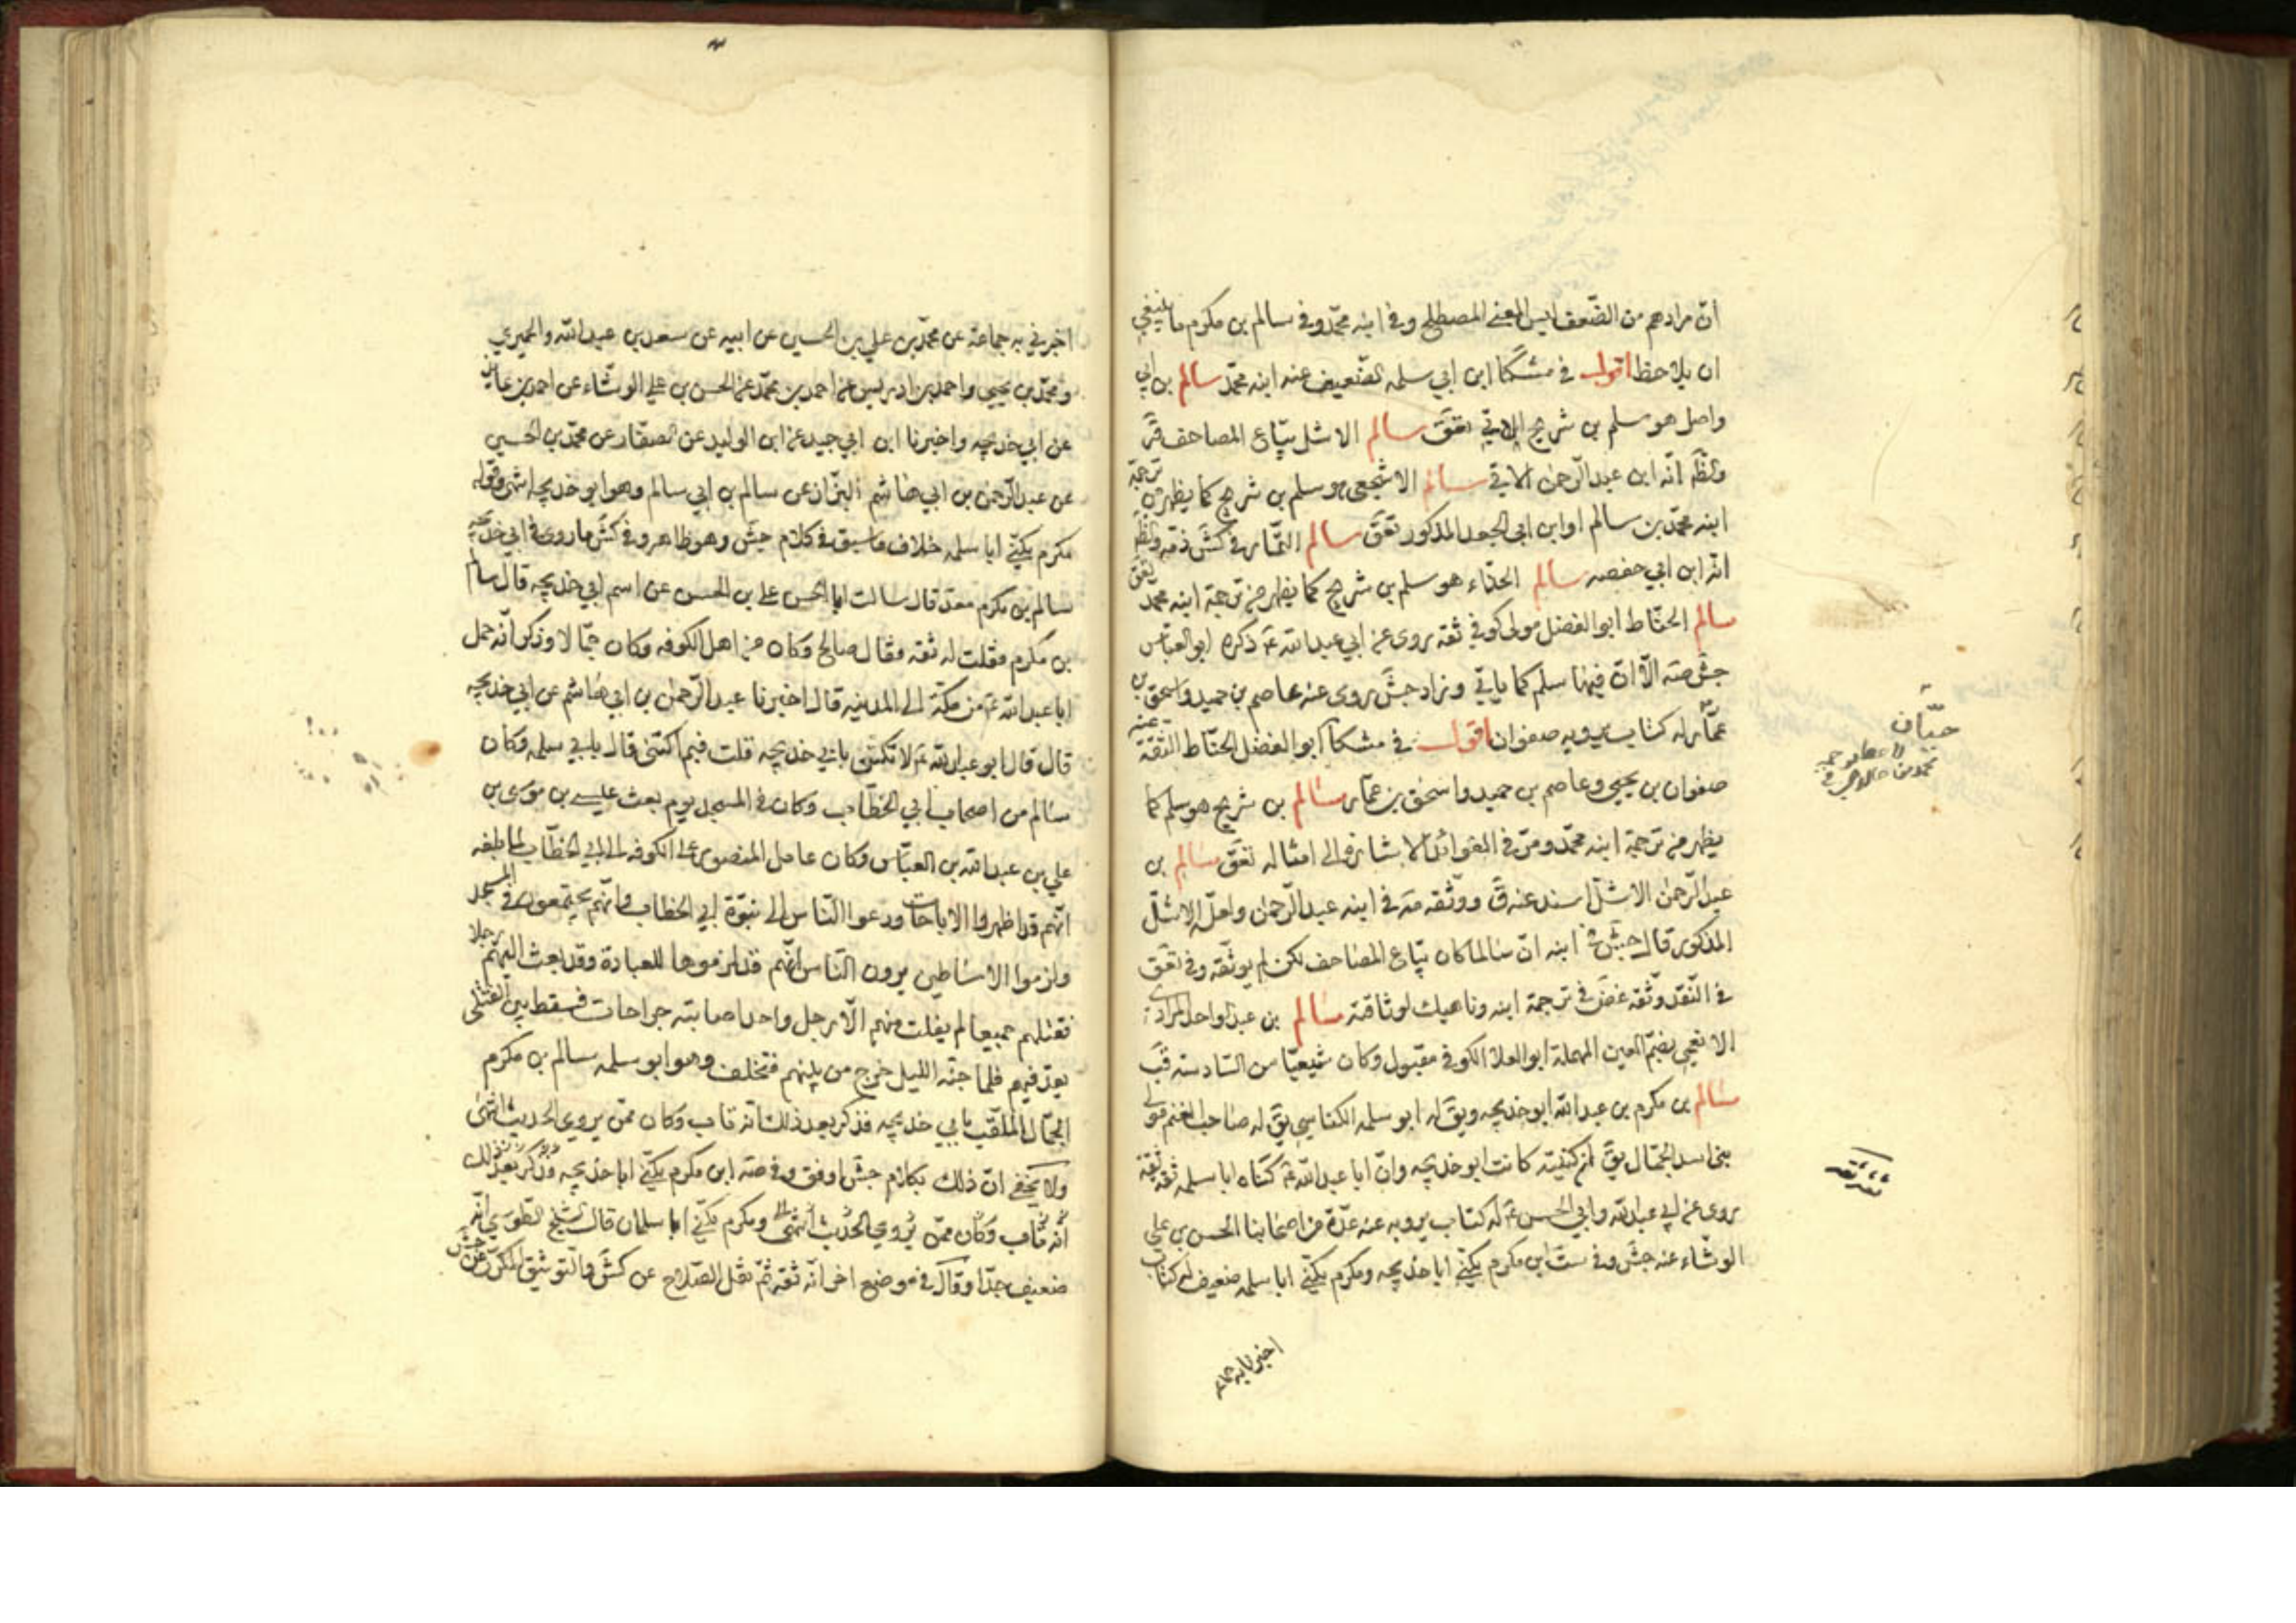 أنّ مرادهم من الضّعف ليس المعنى المصطلح وفي ابنه محمّد وفي سالم بن مكرم ما ينبغي
ان يلاحظ اقول في مشكا ابن ابي سلمه الضّعيف عنه ابنه محمّد سالم بن ابي
واصل هو سلم بن شريح الاتي تعق سالم الاشل بيّاع المصاحف قر
والظّ انّه ابن عبد الرّحمن الاتي سالم الاشجعي هو سلم بن شريح كما يظهر من ترجمة
ابنه محمّد بن سالم او ابن ابي الجعد المذكور تعق سالم التّمار في كش ذمّه والظّ
انّه ابن ابي حفصه سالم الحذّاء هو سلم بن شريح كما يظهر من ترجمة ابنه محمّد تعق
سالم الحنّاط ابو الفضل مولى كوفي ثقة روى عن ابي عبد الله ع ذكره ابو العبّاس
جش صه الّا انّ فيها سلم كما ياتي وزاد جش روى عنه عاصم بن حميد واسحق بن
عمّار له كتاب يرويه صفوان اقول في مشكا ابو الفضل الحنّاط الثّقة عنه
صفوان بن يحيى وعاصم بن حميد واسحق بن عمّار سالم بن شريح هو سلم كما
يظهر من ترجمة ابنه محمّد ومرّ في الفوائد الاشارة الى امثاله تعق سالم بن
عبد الرّحمن الاشلّ اسند عنه ق ووثّقه صه في ابنه عبد الرّحمن ولعلّه الاشلّ
المذكور قال جش في ابنه انّ سالما كان بيّاع المصاحف لكن لم يوثّقه وفي تعق
في النّقد وثّقه غض في ترجمة ابنه وناهيك لوثاقته سالم بن عبد الواحد المرادي
الانعمي بضمّ العين المهملة ابو العلا الكوفي مقبول وكان شيعيّا من السّادسة قب
سالم بن مكرم بن عبد الله ابو خديجه ويق له ابو سلمه الكناسي يق له صاحب الغنم مولى
بني اسد الجمّال يق انّ كنيته كانت ابو خديجه وانّ ابا عبد الله ع كنّاه ابا سلمه ثقة ثقة
روى عن ابي عبد الله وابي الحسن ع له كتاب يرويه عنه عدّة من اصحابنا الحسن بن علي
الوشّاء عنه جش وفي ست ابن مكرم يكنّى ابا خديجه ومكرم يكنّى ابا سلمه ضعيف له كتاب
اخبرنا به جماعة
حنّان
ثقة ثقة
اخبرني به جماعة عن محمّد بن علي بن الحسين عن ابيه عن سعد بن عبد الله والحميري
ومحمّد بن يحيى واحمد بن ادريس عن احمد بن محمّد عن الحسن بن علي الوشّاء عن احمد بن عايذ
عن ابي خديجه واخبرنا ابن ابي جيد عن ابن الوليد عن الصفّار عن محمّد بن الحسين
عن عبد الرّحمن بن ابي هاشم البزّاز عن سالم بن ابي سالم وهو ابو خديجه انتهى وقوله
مكرم يكنّى ابا سلمه خلاف ما سبق في كلام جش وهو ظاهر وفي كش ما روي في ابي خديجه
سالم بن مكرم معد قال سالت ابا الحسن علي بن الحسن عن اسم ابي خديجه قال سالم
بن مكرم فقلت له ثقه فقال صالح وكان من اهل الكوفه وكان جمّالا وذكر انّه حمل
ابا عبد الله ع من مكّة الى المدينه قال اخبرنا عبد الرّحمن بن ابي هاشم عن ابي خديجه
قال قال ابو عبد الله ع لا تكتن بابي خديجه قلت فبم اكتنى قال بابي سلمه وكان
سالم من اصحاب ابي الخطّاب وكان في المسجد يوم بعث عيسى بن موسى بن
علي بن عبد الله بن العبّاس وكان عامل المنصور على الكوفه الى ابي الخطّاب لما بلغه
انّهم قد اظهروا الاباحات ودعوا النّاس الى نبوّة ابي الخطاب وانّهم يجتمعون في المسجد
ولزموا الاساطين يرون النّاس انّهم قد لزموها للعبادة وقد بعث اليهم رجلا
فقتلهم جميعا لم يفلت منهم الّا رجل واحد اصابته جراحات فسقط بين القتلى
يعدّ فيهم فلما جنّه الليل خرج من بينهم فتخلف وهو ابو سلمه سالم بن مكرم
الجمّال الملقّب بابي خديجه فذكر بعد ذلك انّه تاب وكان ممّن يروي الحديث انتهى
ولا يخفى انّ ذلك بكلام جش اوفق وفي صه ابن مكرم يكنّى ابا خديجه وذكر بعد ذلك
انّه تاب وكان ممّن يروي الحديث انتهى ومكرم يكنّى ابا سلمان قال الشيخ الطّوسي انّه
ضعيف جدّا وقال في موضع اخر انّه ثقه ثمّ نقل الصّلاح عن كش والتوثيق المكرّر عن جش